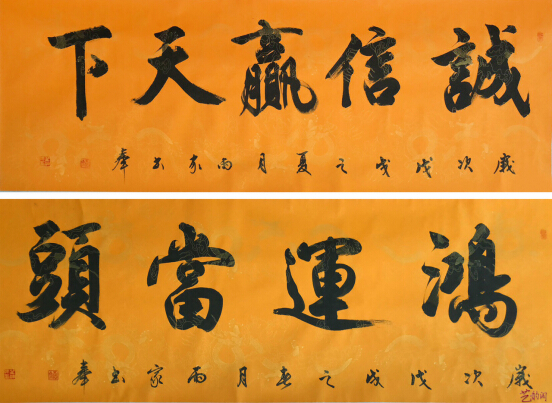 誠信贏天下
歲次戊戌之夏月雨家书奉
鴻運當頭
歲次戊戌之春月雨家书奉